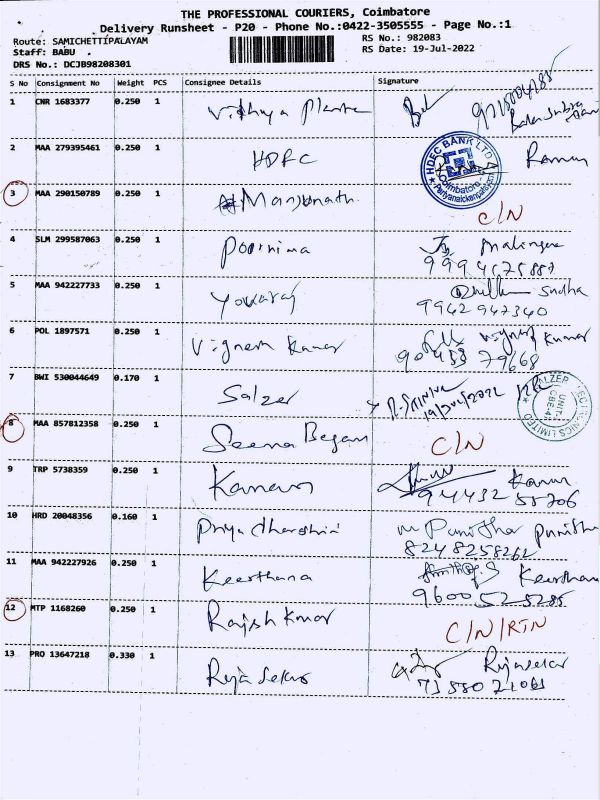 THE PROFESSIONAL COURIERS, Coimbatore
Delivery Runsheet - P20 - Phone No.:0422-3505555 - Page No.:1
Route: SAMICHETTIPALAYAM
RS No.: 982083
Staff: BABU
RS Date: 19-Jul-2022
DRS No.: DCJB98208301
S No Consignment No Weight PCS Consignee Details Signature
1 CNR 1683377 0.250 1 Vidhya
2 MAA 279395461 0.250 1 HDFC Raman
HDFC BANK LTD
Coimbatore
3 MAA 290150789 0.250 1 Manjunath C/N
4 SLM 299587063 0.250 1 Poornima
5 MAA 942227733 0.250 1 Yokaraj Sudha
9942947340
6 POL 1897571 0.250 1 Vignesh Kumar Kumar
90433 79668
7 BWI 530044649 0.170 1 Salzer
19/Jul/2022
8 MAA 857812358 0.250 1 Seena Begam C/N
9 TRP 5738359 0.250 1 Kannan
94432 55706
10 HRD 20048356 0.160 1 Priya dharshini Punitha
8248258262
11 MAA 942227926 0.250 1 Keerthana Keerthana
96005 25285
12 MTP 1168260 0.250 1 Rajesh Kumar C/N/RTN
13 PRO 13647218 0.330 1 Raja Sekar Rajasekar